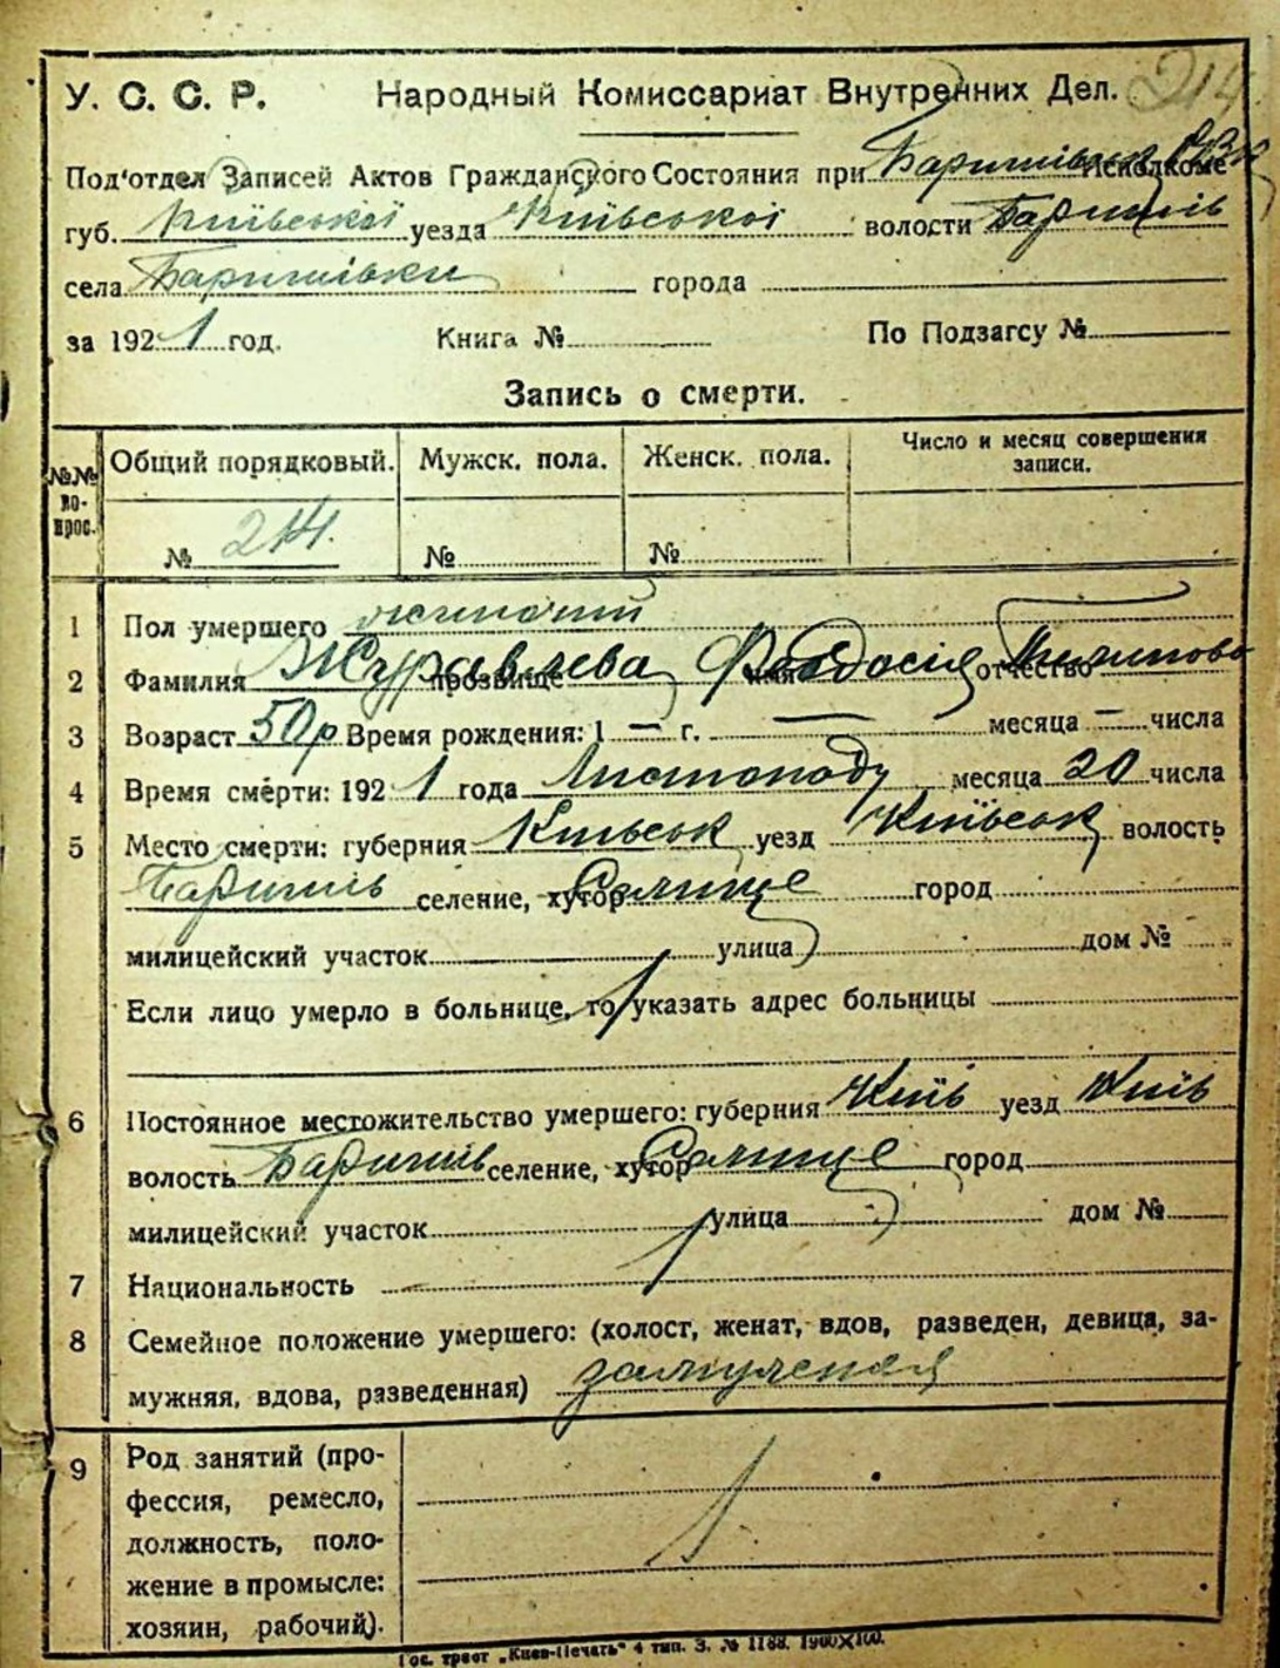 214
У. С. С. Р. Народный Комиссариат Внутренних Дел.
Под'отдел Записей Актов Гражданского Состояния при Баришівськ Исполкоме
губ. Київської уезда Київської волости Баришів
села Баришівки города
за 1921 год. Книга № По Подзагсу №
Запись о смерти.
№№ вопрос. Общий порядковый. Мужск. пола. Женск. пола. Число и месяц совершения записи.
№ 214. № №
1 Пол умершего жиночий
2 Фамилия Журавлева прозвище имя Феодосія отчество
3 Возраст 50р Время рождения: 1 — г. — месяца — числа
4 Время смерти: 1921 года Листопаду месяца 20 числа
5 Место смерти: губерния Київськ уезд Київськ волость
Баришів селение, хутор Селище город
милицейский участок улица дом №
Если лицо умерло в больнице, то указать адрес больницы
6 Постоянное местожительство умершего: губерния Київ уезд Київ
волость Баришів селение, хутор Селище город
милицейский участок улица дом №
7 Национальность
8 Семейное положение умершего: (холост, женат, вдов, разведен, девица, за-
мужняя, вдова, разведенная) замужняя
9 Род занятий (про-
фессия, ремесло,
должность, поло-
жение в промысле:
хозяин, рабочий).
Гос. трест „Киев-Печать" 4 тип. З. № 1188. 1900×100.